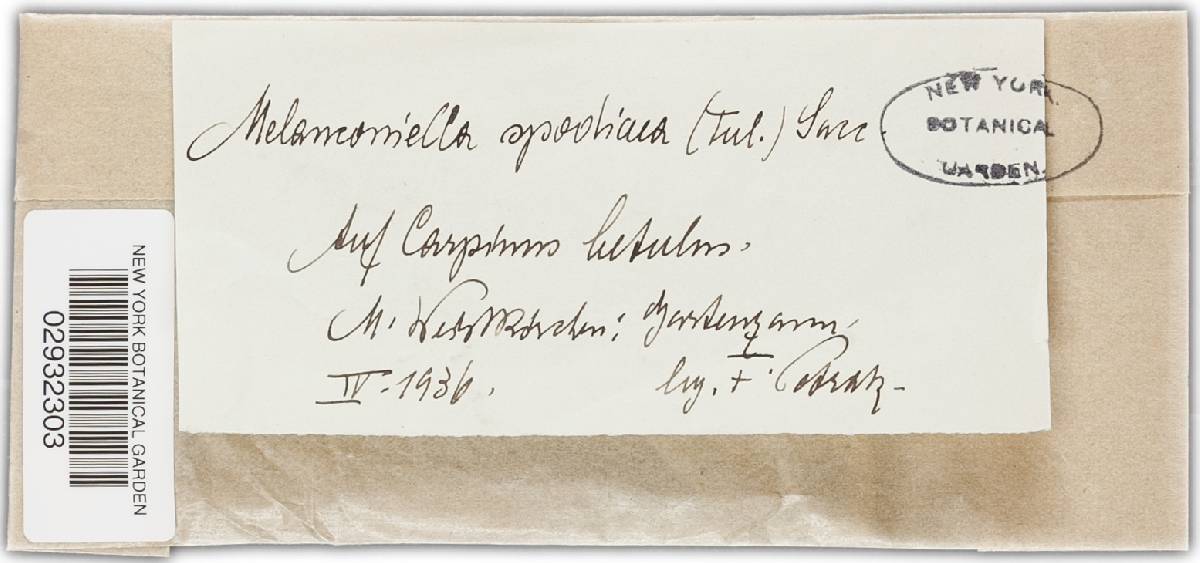 Melanconiella spodiaea (Tul.) Sacc.
NEW YORK
BOTANICAL
GARDEN.
Auf Carpinus betulus.
M. Weisskirchen: Gartenzaun.
IV. 1936.
leg. F. Petrak.
NEW YORK BOTANICAL GARDEN
02932303